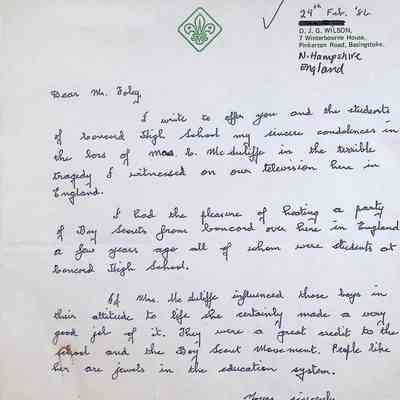 24th Feb. '86
D. J. G. WILSON,
7 Winterbourne House,
Pinkerton Road, Basingstoke.
N. Hampshire
England
Dear Mr. Foley,
I write to offer you and the students
of Concord High School my sincere condolences in
the loss of Mrs. C. McAuliffe in the terrible
tragedy I witnessed on our television here in
England.
I had the pleasure of hosting a party
of Boy Scouts from Concord over here in England
a few years ago all of whom were students at
Concord High School.
If Mrs. McAuliffe influenced those boys in
their attitude to life she certainly made a very
good job of it. They were a great credit to the
school and the Boy Scout Movement. People like
her are jewels in the education system.
Yours sincerely